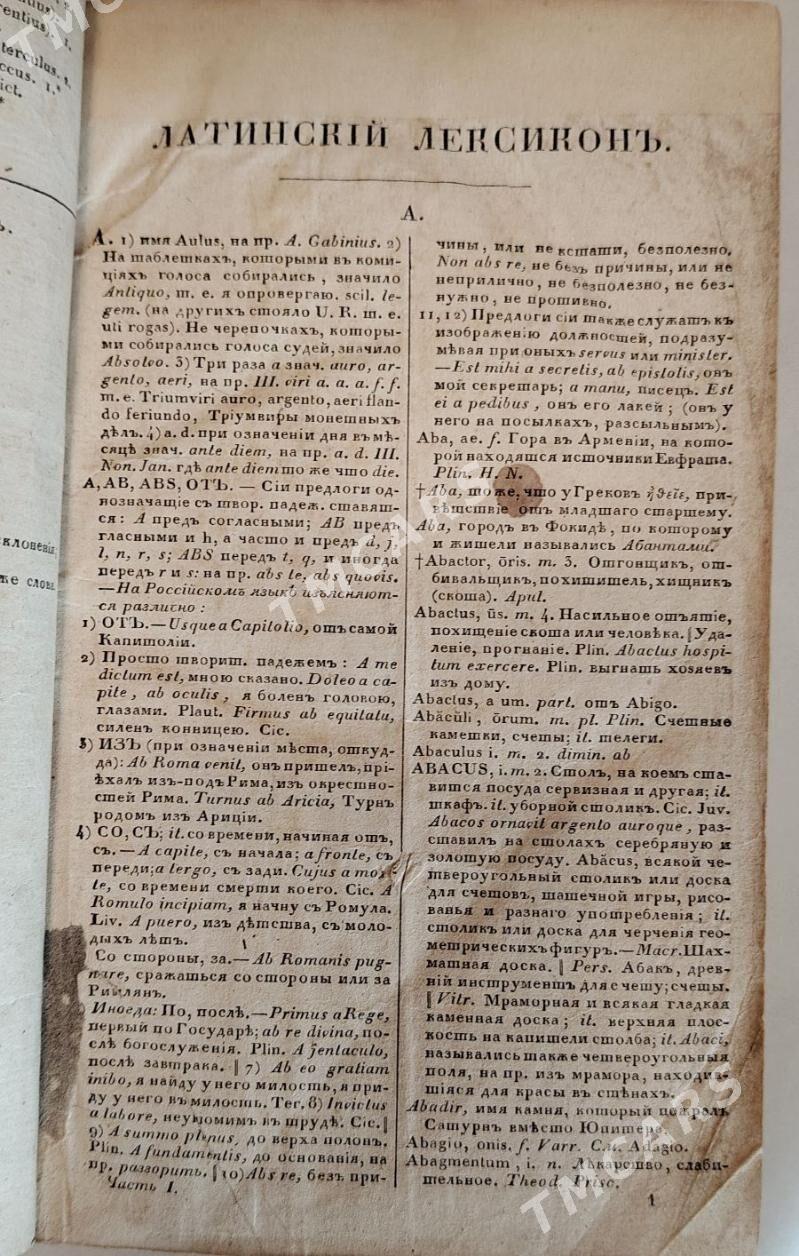 entius).
terculus.
ccus. 1.
ict.
клоненія
же слова
ЛАТИНСКІЙ ЛЕКСИКОНЪ.
А.
А. 1) имя Aulus, на пр. A. Gabinius. 2)
На таблеткахъ, которыми въ коми-
ціяхъ голоса собирались, значило
Antiquo, т. е. я опровергаю. scil. le-
gem. (на другихъ стояло U. R. т. е.
uti rogas). Не черепочкахъ, которы-
ми собирались голоса судей, значило
Absolvo. 3) Три раза а знач. auro, ar-
gento, aeri, на пр. III. viri a. a. a. f. f.
т. е. Triumviri auro, argento, aeri flan-
do feriundo, Тріумвиры монетныхъ
дѣлъ. 4) a. d. при означеніи дня въ мѣ-
сяцѣ знач. ante diem, на пр. a. d. III.
Non. Jan. гдѣ ante diem то же что die.
A, AB, ABS, ОТЪ. — Сіи предлоги од-
нозначащіе съ твор. падеж. ставят-
ся: A предъ согласными; AB предъ
гласными и h, а часто и предъ d, j,
l, n, r, s; ABS передъ t, q, и иногда
передъ r и s: на пр. abs te, abs quovis.
—На Россійскомъ языкѣ изъясняют-
ся различно:
1) ОТЪ.—Usque a Capitolio, отъ самой
Капитоліи.
2) Просто творит. падежемъ: A me
dictum est, мною сказано. Doleo a ca-
pite, ab oculis, я боленъ головою,
глазами. Plaut. Firmus ab equitatu,
силенъ конницею. Cic.
3) ИЗЪ (при означеніи мѣста, откуд-
да): Ab Roma venit, онъ пришелъ, прі-
ѣхалъ изъ-подъ Рима, изъ окрестно-
стей Рима. Turnus ab Aricia, Турнъ
родомъ изъ Ариціи.
4) СО, СЪ; it. со времени, начиная отъ,
съ.—A capite, съ начала; a fronte, съ
переди; a tergo, съ зади. Cujus a mor-
te, со времени смерти коего. Cic. A
Romulo incipiam, я начну съ Ромула.
Liv. A puero, изъ дѣтства, съ моло-
дыхъ лѣтъ.
Со стороны, за.—Ab Romanis pug-
nare, сражаться со стороны или за
Римлянъ.
Иногда: По, послѣ.—Primus a Rege,
первый по Государѣ; ab re divina, по-
слѣ богослуженія. Plin. A jentaculo,
послѣ завтрака. ‖ 7) Ab eo gratiam
inibo, я найду у него милость, я при-
ду у него въ милость. Ter. 8) Invictus
a labore, неутомимъ въ трудѣ. Cic. ‖
9) A summo plenus, до верха полонъ.
Plin. A fundamentis, до основанія, на
пр. разворить. ‖ 10) Abs re, безъ при-
Часть I.
чины, или не кстати, безполезно.
Non abs re, не безъ причины, или не
неприлично, не безполезно, не без-
нужно, не противно.
11, 12) Предлоги сіи также служатъ къ
изображенію должностей, подразу-
мѣвая при оныхъ servus или minister.
—Est mihi a secretis, ab epistolis, онъ
мой секретарь; a manu, писецъ. Est
ei a pedibus, онъ его лакей; (онъ у
него на посылкахъ, разсыльнымъ).
Aba, ae. f. Гора въ Арменіи, на кото-
рой находятся источники Евфрата.
Plin. H. N.
†Aba, тоже, что у Грековъ привѣтствіе отъ младшаго старшему.
Aba, городъ въ Фокидѣ, по которому
и жители назывались Абантами.
†Abactor, ōris. m. 3. Отгонщикъ, от-
бивальщикъ, похититель, хищникъ
(скота). Apul.
Abactus, ūs. m. 4. Насильное отъятіе,
похищеніе скота или человѣка. ‖ Уда-
леніе, прогнаніе. Plin. Abactus hospi-
tum exercere. Plin. выгнать хозяевъ
изъ дому.
Abactus, a um. part. отъ Abigo.
Abăcŭli, ōrum. m. pl. Plin. Счетные
камешки, счеты; it. телеги.
Abaculus i. m. 2. dimin. ab
ABACUS, i. m. 2. Столъ, на коемъ ста-
вится посуда сервизная и другая; it.
шкафъ. it. уборной столикъ. Cic. Juv.
Abacos ornavit argento auroque, раз-
ставилъ на столахъ серебряную и
золотую посуду. Abăcus, всякой че-
твероугольный столикъ или доска
для счетовъ, шашечной игры, рисо-
ванья и разнаго употребленія; it.
столикъ или доска для черченія гео-
метрическихъ фигуръ.—Macr. Шах-
матная доска. ‖ Pers. Абакъ, древ-
ній инструментъ для счету; счеты.
‖ Vitr. Мраморная и всякая гладкая
каменная доска; it. верхняя плос-
кость на капители столба; it. Abaci,
назывались также четвероугольныя
поля, на пр. изъ мрамора, находив-
шіяся для красы въ стѣнахъ.
Abadir, имя камня, который пожралъ
Сатурнъ вмѣсто Юпитера.
Abagio, onis. f. Varr. С.м. Adagio.
Abagmentum, i. n. Лѣкарство, слаби-
тельное. Theod. Prisc.
1
TMCARS
TMCARS